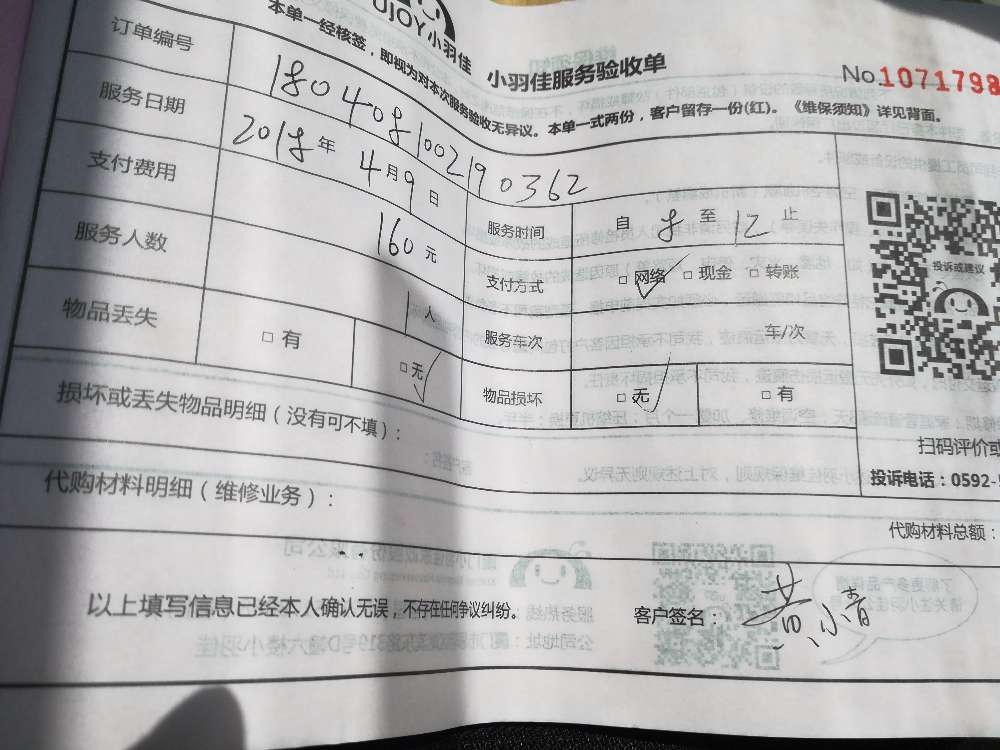 UJOY小羽佳
小羽佳服务验收单
No.1071798
本单一经核签，即视为对本次服务验收无异议。本单一式两份，客户留存一份(红)。《维保须知》详见背面。
订单编号 1804081002190362
服务日期 2018年4月9日 服务时间 自8至12止
支付费用 160元 支付方式 □网络 □现金 □转账
服务人数 1人 服务车次 车/次
物品丢失 □有 □无 物品损坏 □无 □有
投诉或建议
损坏或丢失物品明细（没有可不填）：
扫码评价或
投诉电话：0592-
代购材料明细（维修业务）：
代购材料总额：
以上填写信息已经本人确认无误，不存在任何争议纠纷。
客户签名：黄小青